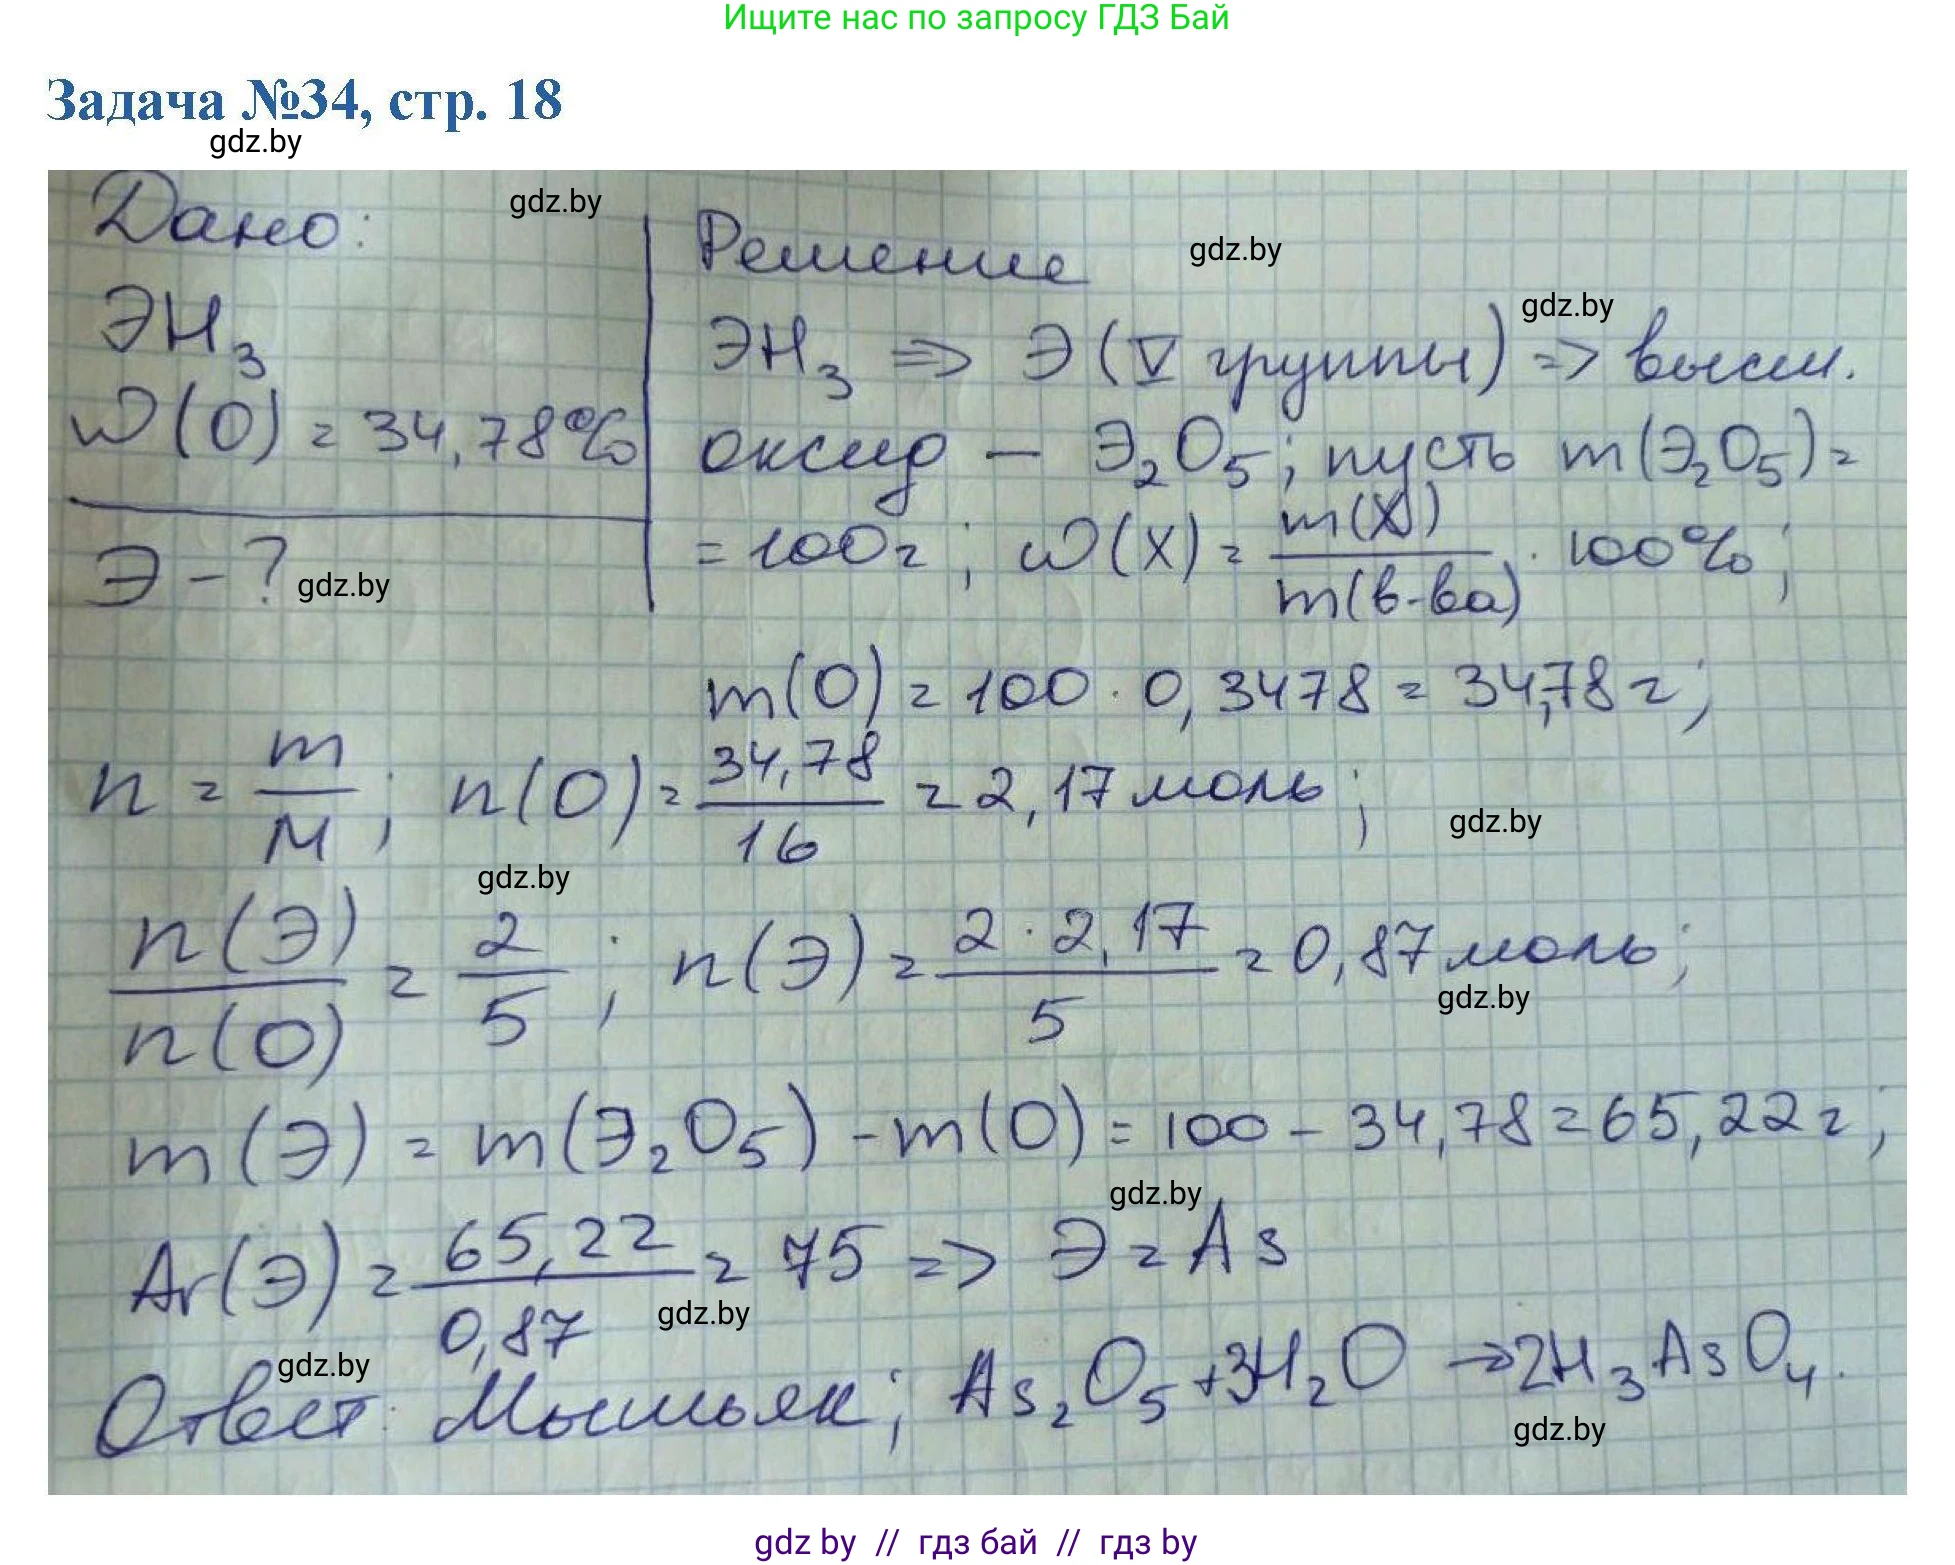 Ищите нас по запросу ГДЗ Бай
Задача №34, стр. 18
gdz.by
Дано:
gdz.by
ЭH₃
W(O) = 34,78%
Э - ?
gdz.by
Решение
gdz.by
gdz.by
ЭH₃ => Э (V группы) => высш.
оксид — Э₂O₅; пусть m(Э₂O₅) =
= 100г; W(X) = m(X)/m(в-ва) · 100%;
m(O) = 100 · 0,3478 = 34,78г;
n = m/M; n(O) = 34,78/16 = 2,17 моль;
gdz.by
gdz.by
n(Э)/n(O) = 2/5; n(Э) = 2 · 2,17/5 = 0,87 моль;
gdz.by
m(Э) = m(Э₂O₅) - m(O) = 100 - 34,78 = 65,22г;
gdz.by
Ar(Э) = 65,22/0,87 = 75 => Э = As
gdz.by
gdz.by
Ответ: Мышьяк; As₂O₅ + 3H₂O → 2H₃AsO₄.
gdz.by
gdz by // гдз бай // гдз by